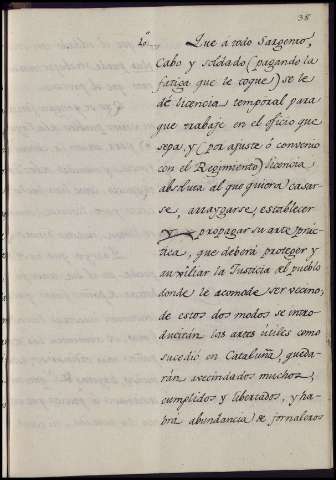 38
10.
Que á todo Sargento,
Cabo y soldado (pagando la
fatiga que le toque) se le
dé licencia temporal para
que trabaje en el oficio que
sepa, y (por ajuste ó convenio
con el Regimiento) licencia
absoluta al que quiera casar-
se, arraygarse, establecer
y propagar su arte prác-
tica, que deberá proteger y
auxîliar la Justicia del pueblo
donde le acomode ser vecino;
de estos dos modos se intro-
ducirán los artes útiles como
sucedió en Cataluña, queda-
rán avecindados muchos,
cumplidos y libertados, y ha-
brá abundancia de jornaleros